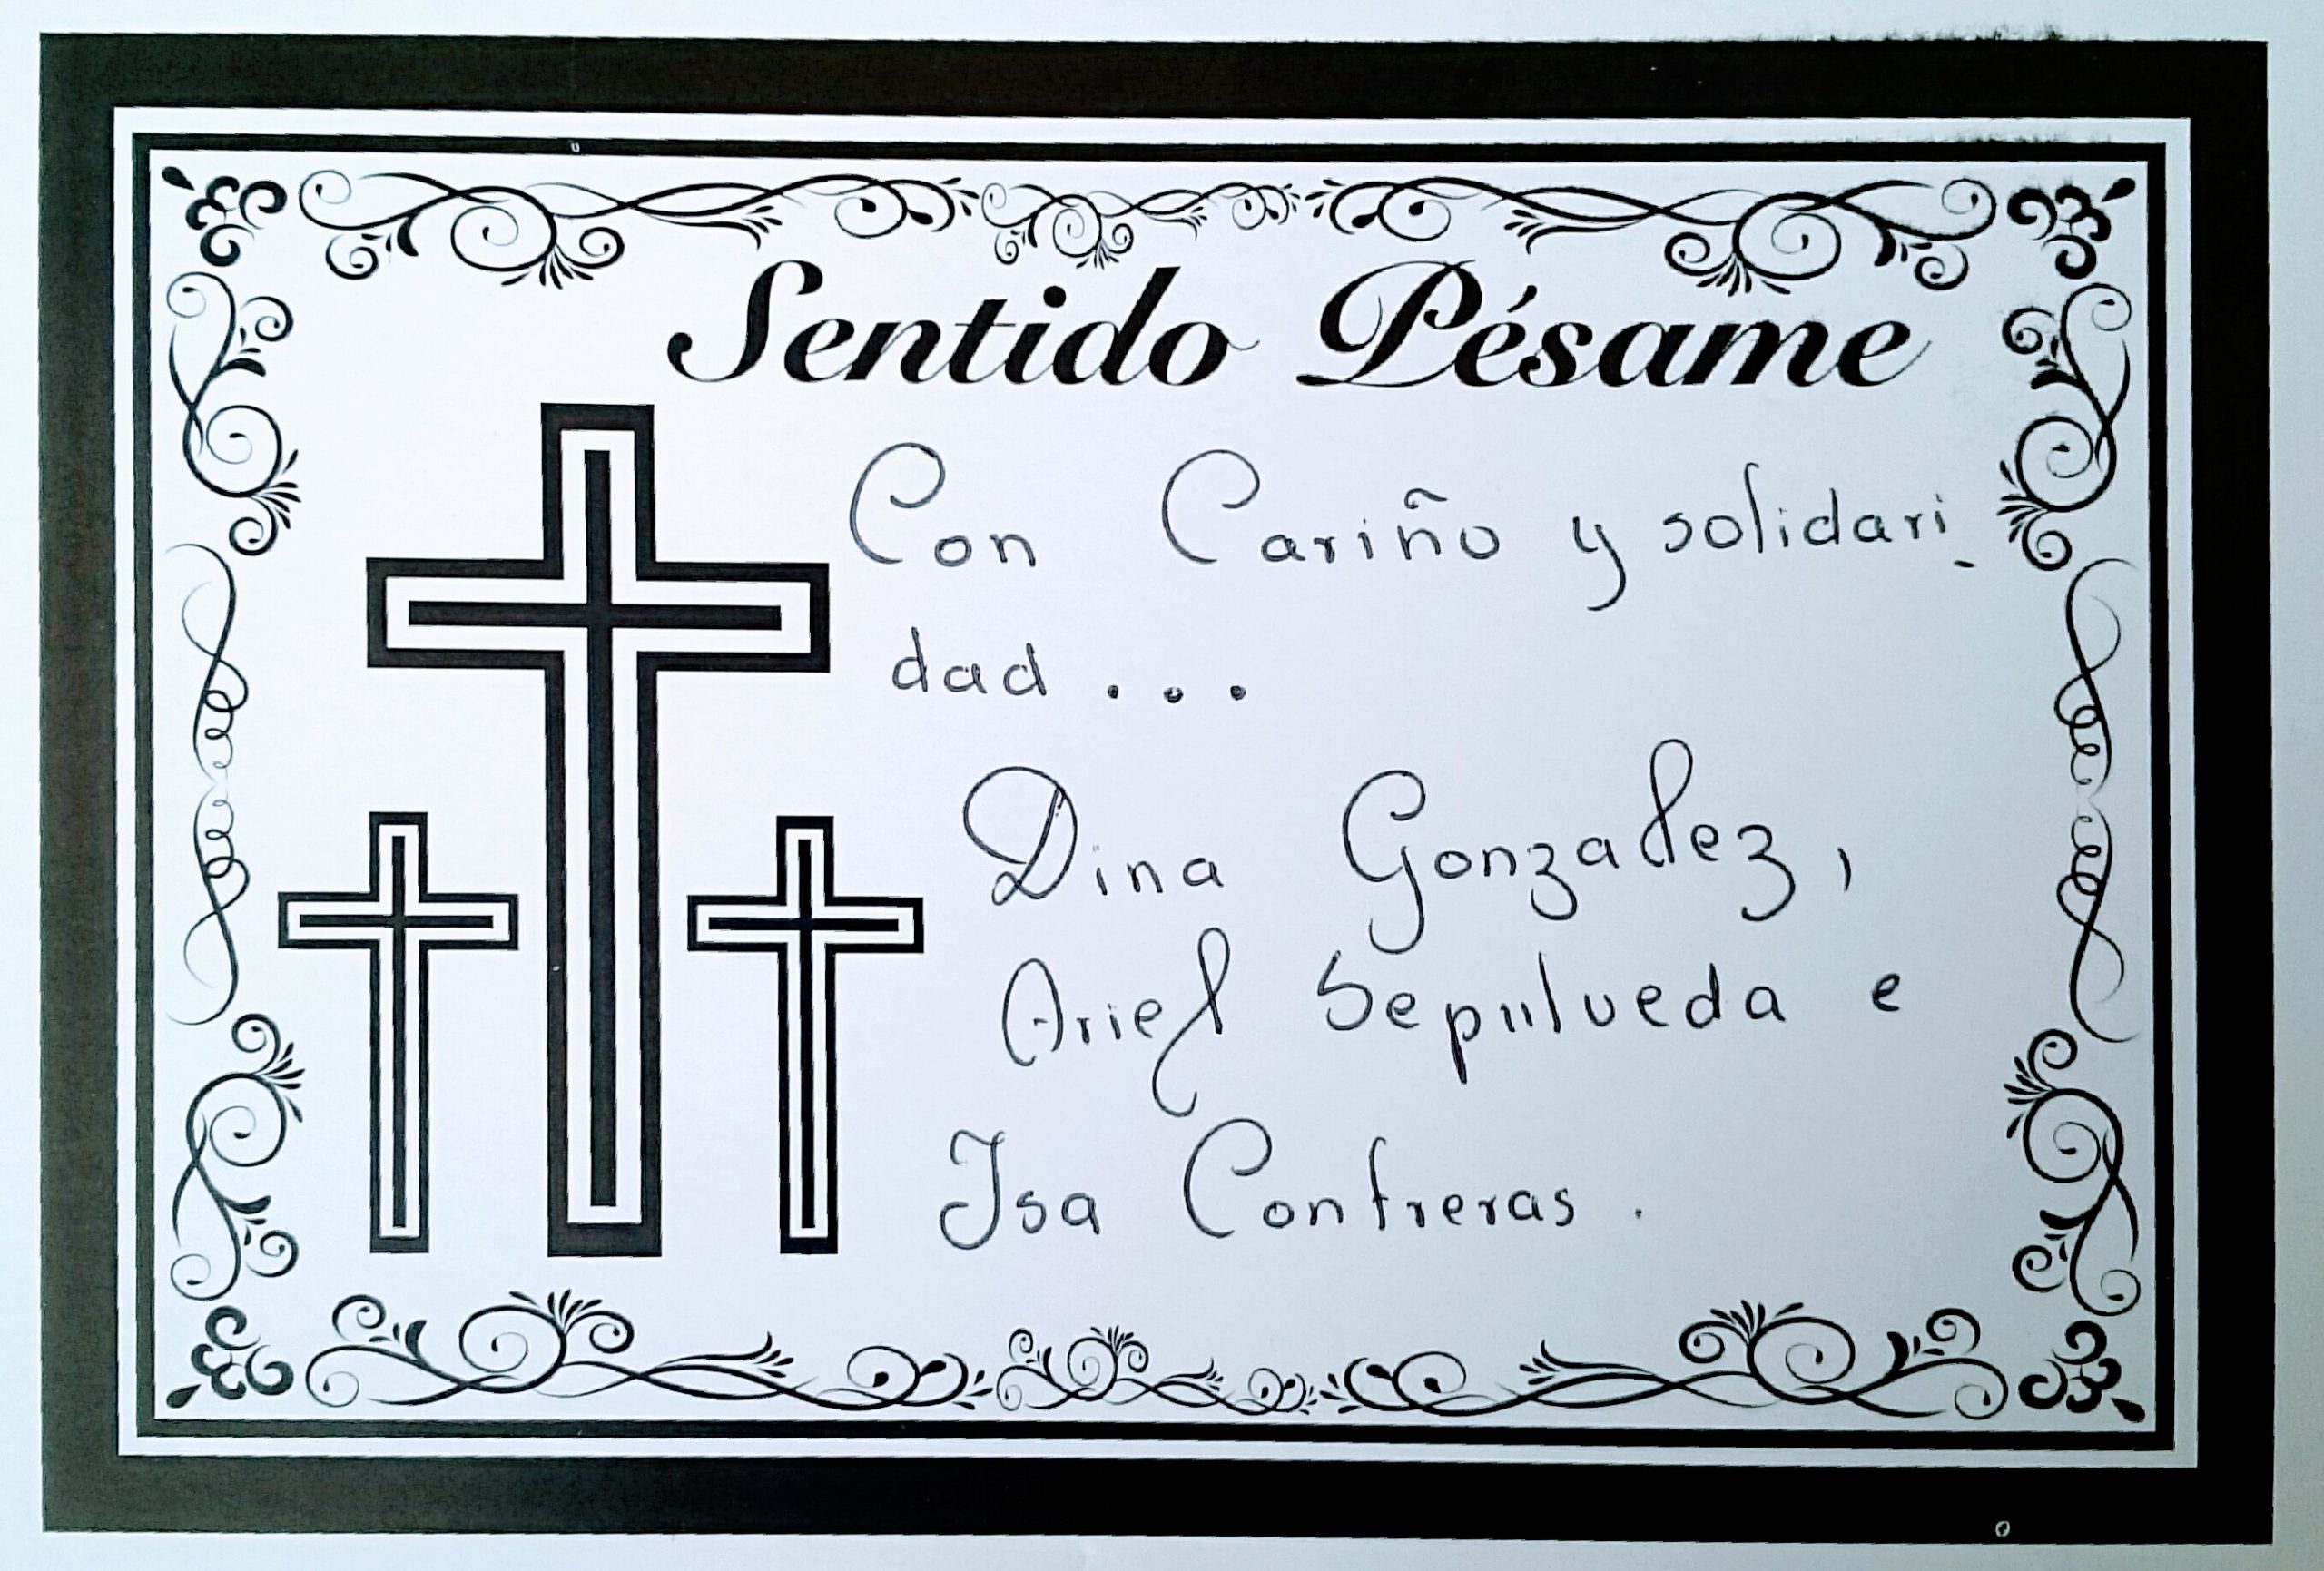 Sentido Pésame
Con Cariño y solidari-
dad...
Dina Gonzalez,
Ariel Sepulveda e
Isa Contreras.